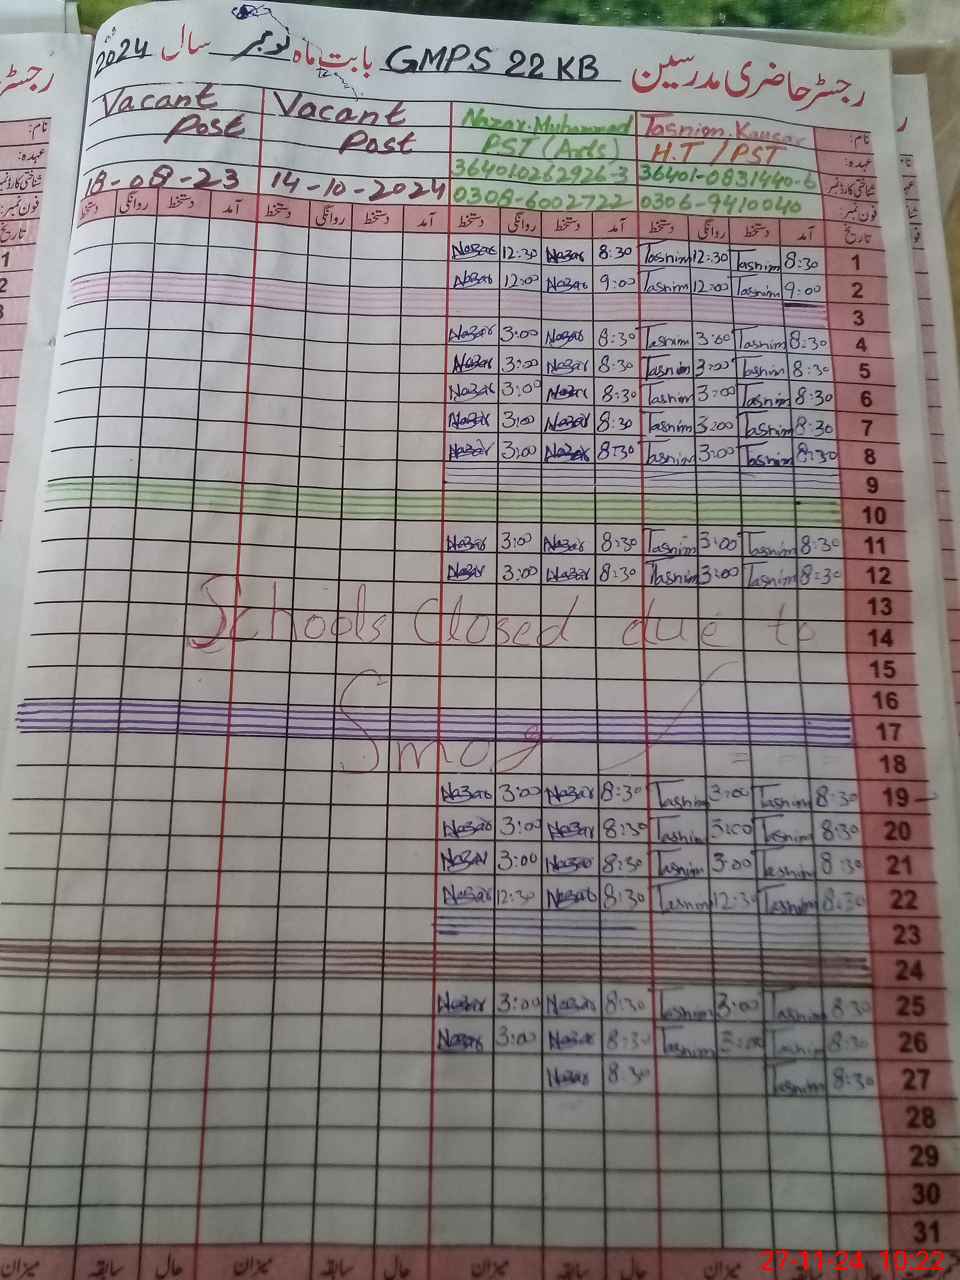 رجسٹر حاضری مدرسین GMPS 22 KB بابت ماہ نومبر سال 2024
نام: Tasnim Kausar Nazar Muhammad Vacant Vacant
عہدہ: H.T / PST PST (Arts) Post Post
شناختی کارڈ نمبر 36401-0831440-6 364010262926-3
فون نمبر: 0306-9410040 0308-6002722 14-10-2024 18-08-23
تاریخ آمد دستخط روانگی دستخط آمد دستخط روانگی دستخط آمد دستخط روانگی دستخط آمد دستخط روانگی دستخط
1 8:30 Tasnim 12:30 Tasnim 8:30 Nazar 12:30 Nazar
2 9:00 Tasnim 12:00 Tasnim 9:00 Nazar 12:00 Nazar
3
4 8:30 Tasnim 3:00 Tasnim 8:30 Nazar 3:00 Nazar
5 8:30 Tasnim 3:00 Tasnim 8:30 Nazar 3:00 Nazar
6 8:30 Tasnim 3:00 Tasnim 8:30 Nazar 3:00 Nazar
7 8:30 Tasnim 3:00 Tasnim 8:30 Nazar 3:00 Nazar
8 8:30 Tasnim 3:00 Tasnim 8:30 Nazar 3:00 Nazar
9
10
11 8:30 Tasnim 3:00 Tasnim 8:30 Nazar 3:00 Nazar
12 8:30 Tasnim 3:00 Tasnim 8:30 Nazar 3:00 Nazar
13
Schools Closed due to
14
15
16
17
Smog
18
19 8:30 Tasnim 3:00 Tasnim 8:30 Nazar 3:00 Nazar
20 8:30 Tasnim 3:00 Tasnim 8:30 Nazar 3:00 Nazar
21 8:30 Tasnim 3:00 Tasnim 8:30 Nazar 3:00 Nazar
22 8:30 Tasnim 12:30 Tasnim 8:30 Nazar 12:30 Nazar
23
24
25 8:30 Tasnim 3:00 Tasnim 8:30 Nazar 3:00 Nazar
26 8:30 Tasnim 3:00 Tasnim 8:30 Nazar 3:00 Nazar
27 8:30 Tasnim 8:30 Nazar
28
29
30
31
میزان حال سابقہ میزان حال سابقہ میزان
27-11-24 10:22